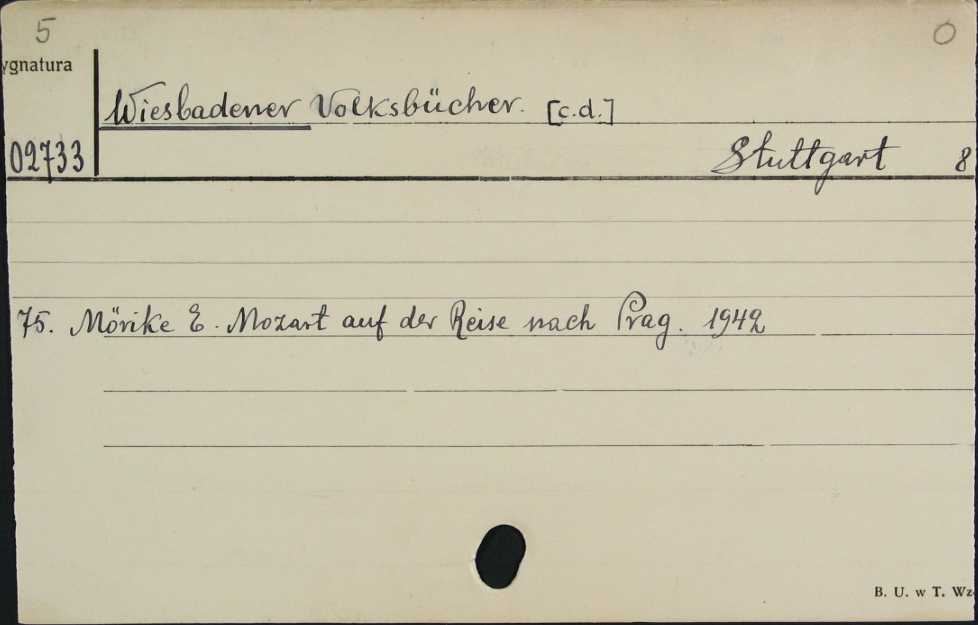 5 0
ygnatura
Wiesbadener Volksbücher. [c.d.]
02733 Stuttgart 8
75. Mörike E. Mozart auf der Reise nach Prag. 1942
B. U. w T. Wz